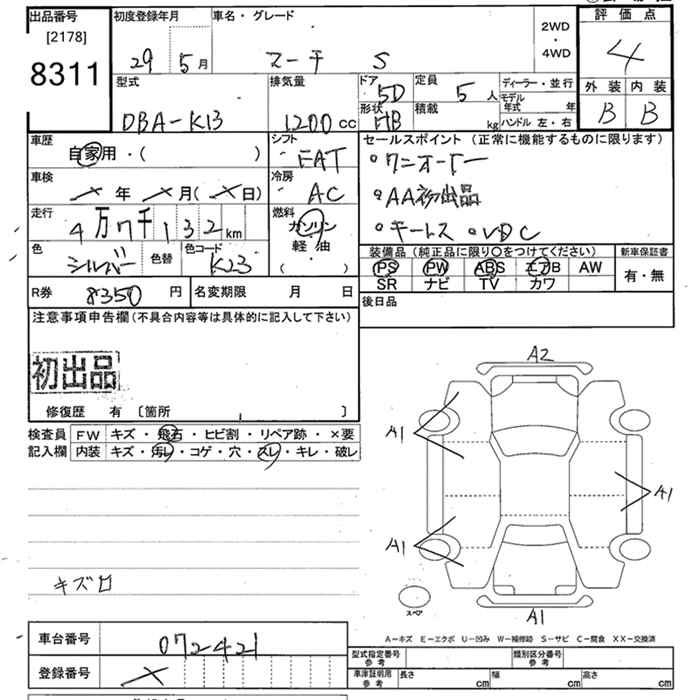 出品番号
[2178]
8311
初度登録年月
29 5月
車名・グレード
マーチ S
2WD
・
4WD
評価点
4
外装 内装
B B
型式
DBA-K13
排気量
1200cc
ドア
5D
形状
HB
定員
5人
積載
kg
ディーラー・並行
モデル年式 年
ハンドル 左・右
車歴
自家用・( )
シフト
FAT
セールスポイント (正常に機能するものに限ります)
・ワンオーナー
・AA初出品
・キーレス ・VDC
車検
年 月( 日)
冷房
AC
走行
4万7千132km
燃料
ガソリン
軽油
( )
色
シルバー
色替
色コード
K23
装備品(純正品に限り○をつけてください)
PS PW ABS エアB AW
SR ナビ TV カワ
新車保証書
有・無
R券 8350円
名変期限 月 日
後日品
注意事項申告欄(不具合内容等は具体的に記入して下さい)
初出品
修復歴 有 [箇所 ]
検査員
記入欄
FW キズ・飛石・ヒビ割・リペア跡・×要
内装 キズ・汚レ・コゲ・穴・スレ・キレ・破レ
A2
A1
A1
A1
A1
スペア
キズ
A-キズ E-エクボ U-凹み W-補修跡 S-サビ C-腐食 XX-交換済
車台番号 072421
登録番号
型式指定番号
参考
類別区分番号
参考
車庫証明用
参考
長さ cm 幅 cm 高さ cm